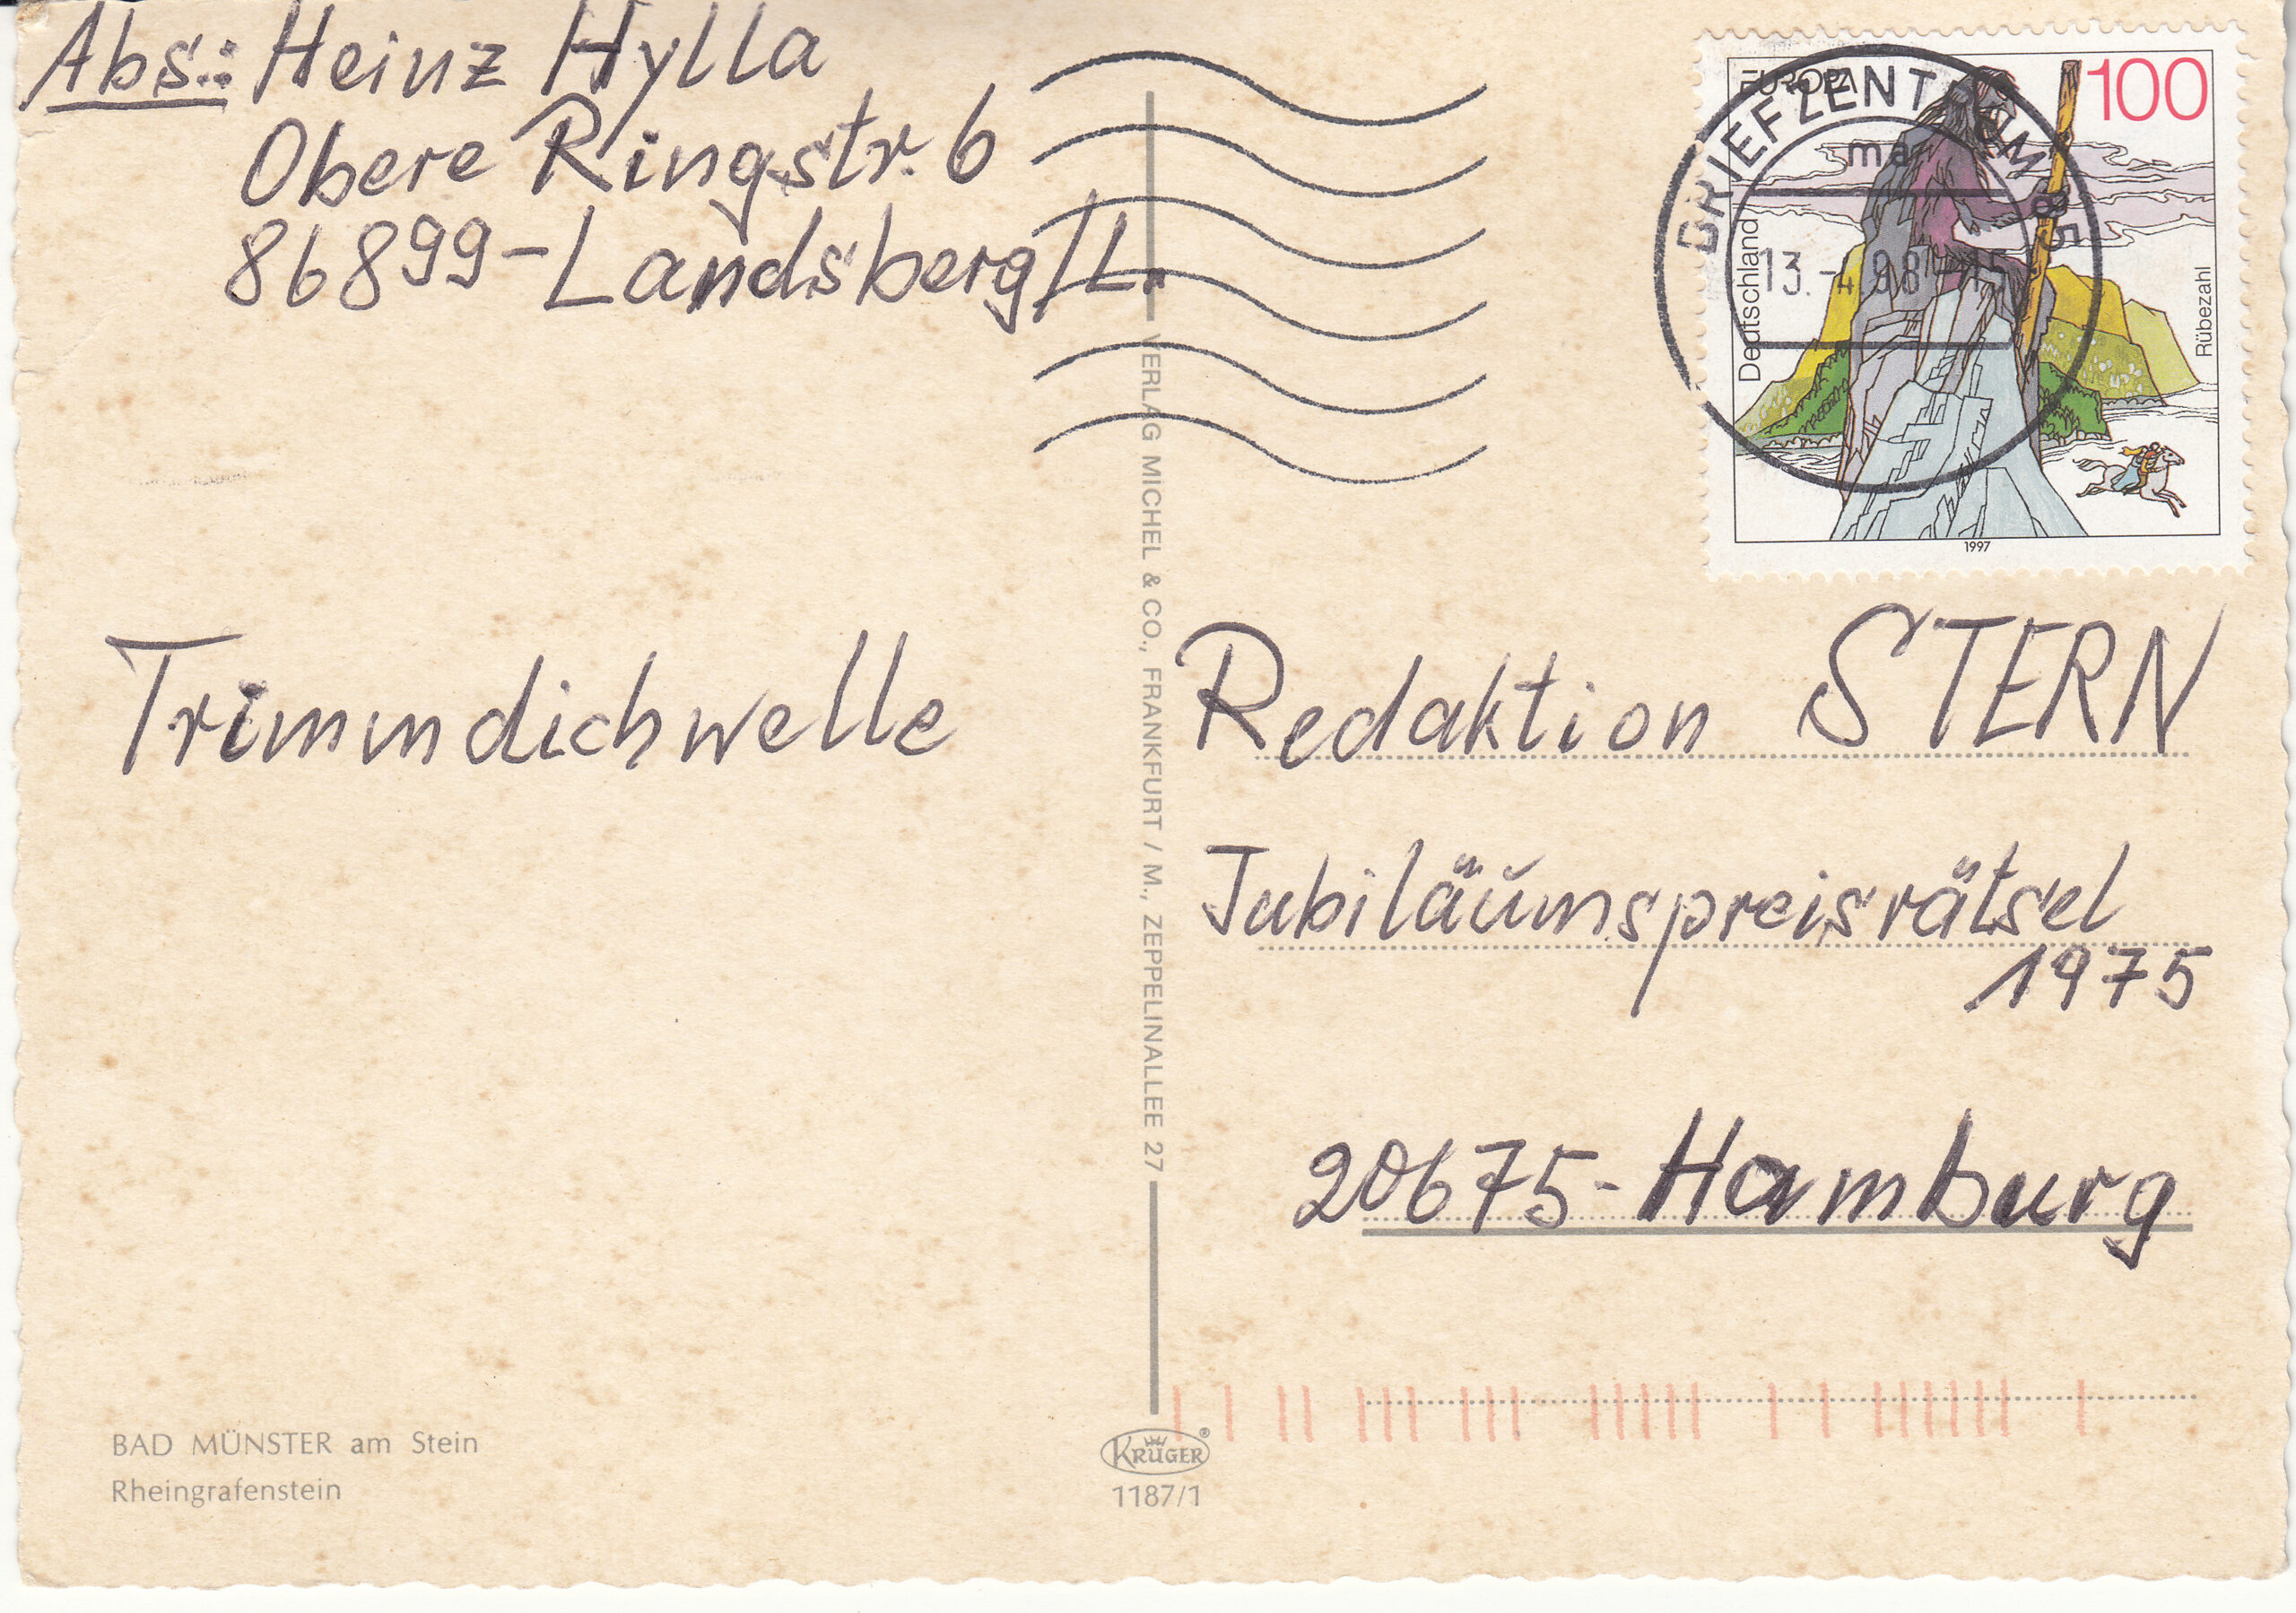 Abs.: Heinz Hylla
Obere Ringstr. 6
86899-Landsberg/L.
EUROPA
100
Deutschland
Rübezahl
1997
BRIEFZENTRUM 85
ma
13.-4.98-15
Trimmdichwelle
Redaktion STERN
Jubiläumspreisrätsel
1975
20675-Hamburg
VERLAG MICHEL & CO., FRANKFURT / M., ZEPPELINALLEE 27
BAD MÜNSTER am Stein
Rheingrafenstein
KRÜGER®
1187/1